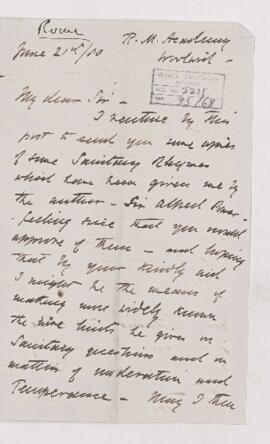 Rome
June 21st/80
R. M. Academy
Woolwich -
5211
35/68
My dear Sir -
I venture by this
post to send you some copies
of some Sanitary Rhymes
which have been given me by
the author - Sir Alfred Power -
feeling sure that you would
approve of them - and hoping
that by your kindly aid
I might be the means of
making more widely known
the wise hints he gives on
Sanitary questions and on
matters of moderation and
Temperance - May I then